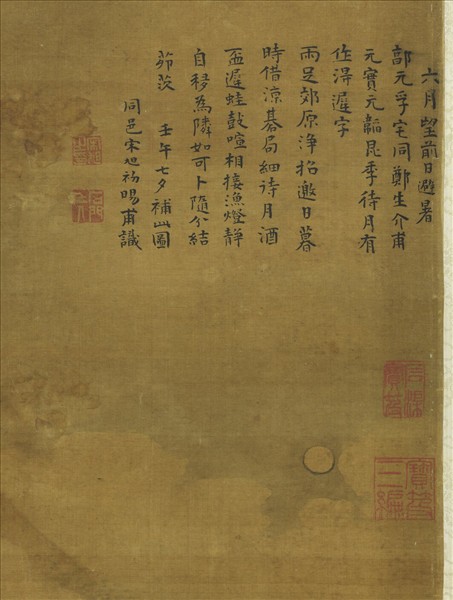 六月望前日避暑
郭元孚宅同鄭生介甫
元實元韜昆季待月有
作淂遲字
雨足郊原淨招邀日暮
時借涼碁局細待月酒
盃遲蛙鼓喧相接漁燈靜
自移為隣如可卜隨分結
茆茨 壬午七夕補此圖
同邑宋旭初暘甫識
石渠寶笈
寶笈三編